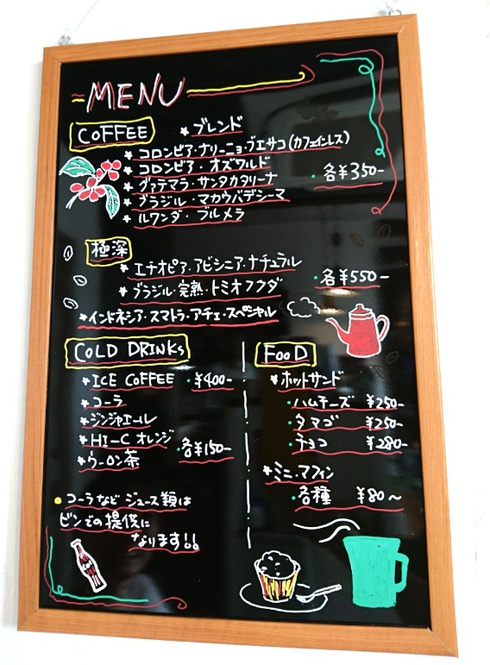 MENU
COFFEE
★ブレンド
★コロンビア・ナリーニョ・ブエサコ(カフェインレス)
★コロンビア・オズワルド
★グァテマラ・サンタカタリーナ
・各¥350-
★ブラジル・マカウバデシーマ
★ルワンダ・ブルメラ
極深
★エチオピア・アビシニア・ナチュラル
・各¥550-
★ブラジル・完熟・トミオフクダ
★インドネシア・スマトラ・アチェ・スペシャル
COLD DRINKS
★ICE COFFEE ・¥400-
★コーラ
★ジンジャエール
★HI-C オレンジ
各¥150-
★ウーロン茶
●コーラなど ジュース類は
ビンでの提供に
なります!!
FOOD
★ホットサンド
・ハムチーズ ¥250-
・タマゴ ¥250-
・チョコ ¥280-
★ミニ・マフィン
・各種 ¥80〜